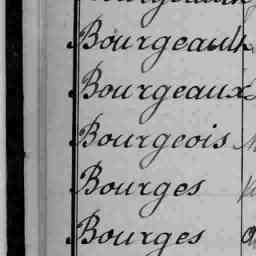 Bourgeault
Bourgeaux
Bourgeois
Bourges
Bourges